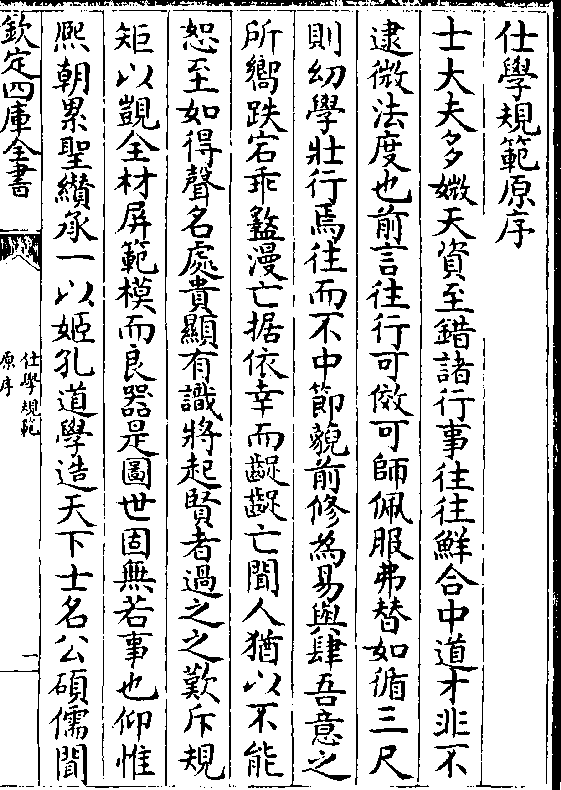 仕學規範原序
士大夫多媺天資至錯諸行事往往鮮合中道才非不
逮微法度也前言往行可倣可師佩服弗替如循三尺
則幼學壯行焉往而不中節藐前修為易與肆吾意之
所嚮跌宕乖盭漫亡据依幸而齪齪亡聞人猶以不能
恕至如得聲名處貴顯有識將起賢者過之之歎斥規
矩以覬全材屏範模而良器是圖世固無若事也仰惟
熙朝累聖纘承一以姬孔道學造天下士名公碩儒聞
欽定四庫全書
仕學規範
原序
一